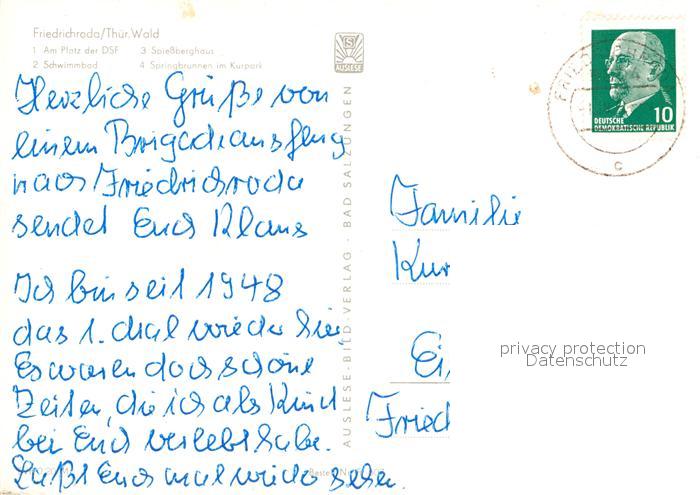 Friedrichroda/Thür. Wald
1 Am Platz der DSF 3 Spießberghaus
2 Schwimmbad 4 Springbrunnen im Kurpark
AUSLESE
Herzliche Grüße von
einem Brigadeausflug
nach Friedrichroda
sendet Euch Klaus
Ich bin seit 1948
das 1. Mal wieder hier
Es waren doch schöne
Zeiten, die ich als Kind
bei Euch verlebt habe.
Laßt Euch mal wieder sehen.
AUSLESE-BILD-VERLAG · BAD SALZUNGEN
DEUTSCHE
DEMOKRATISCHE REPUBLIK
10
c
Familie
Kur
Ei
Fried
privacy protection
Datenschutz